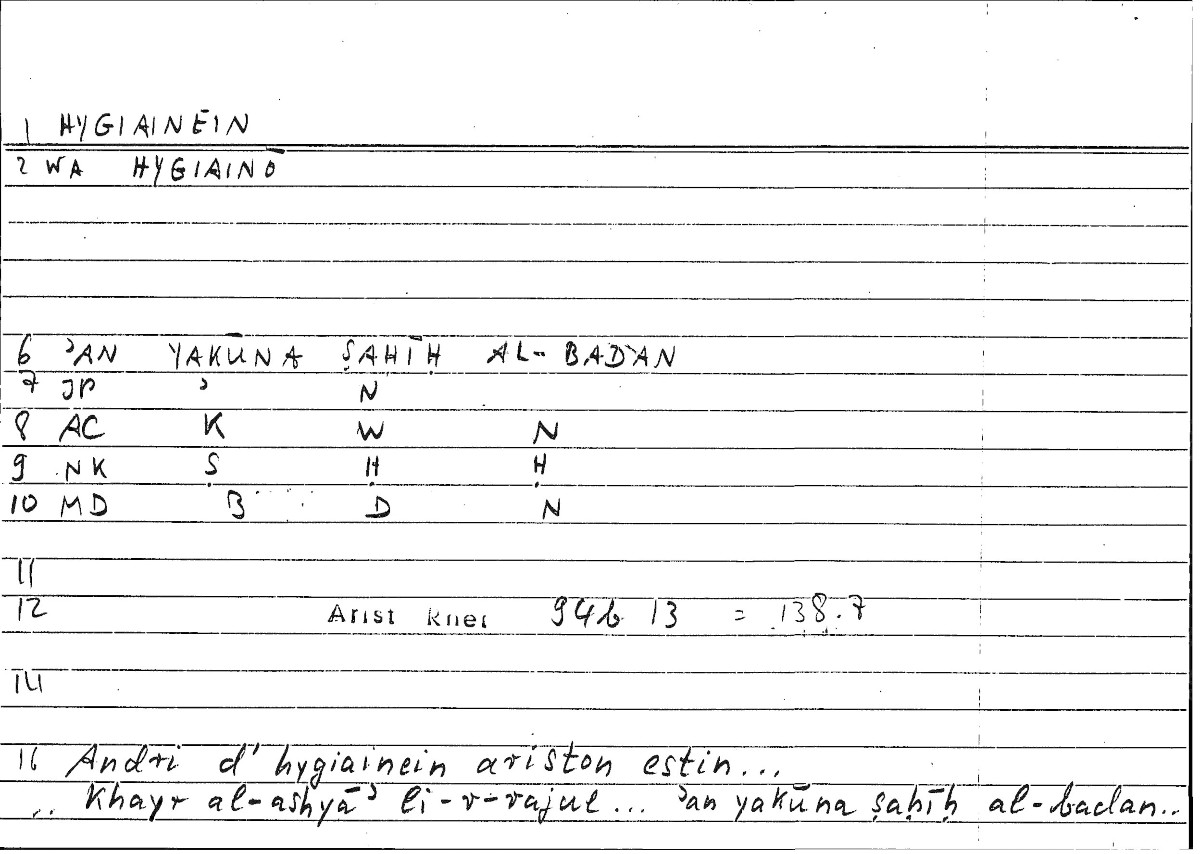 1 HYGIAINEIN
2 WA HYGIAINŌ
6 ʾAN YAKŪNA ṢAḤĪḤ AL-BADAN
7 JP ʾ N
8 AC K W N
9 NK Ṣ Ḥ Ḥ
10 MD B D N
11
12 Arist Rhet 94b 13 = 138.7
14
16 Andri d' hygiainein ariston estin...
.. Khayr al-ashyāʾ li-r-rajul... ʾan yakūna ṣaḥīḥ al-badan..